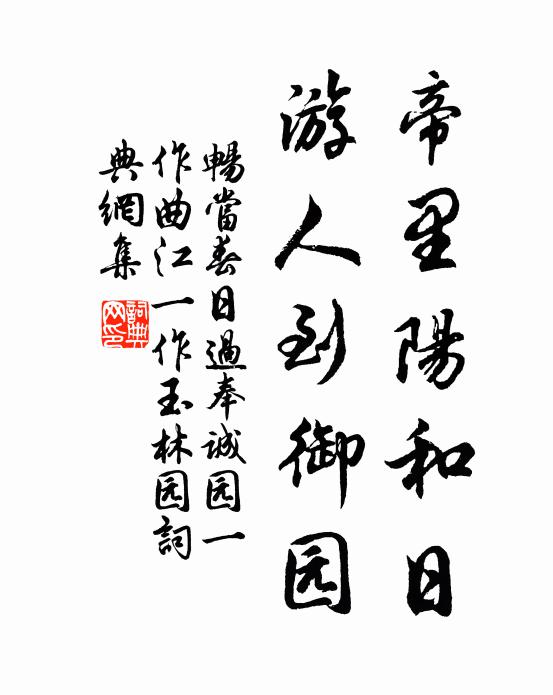 帝里陽和日
游人到御园
暢當春日過奉誠园一
作曲江一作玉林园詞
典網集
詞典网印